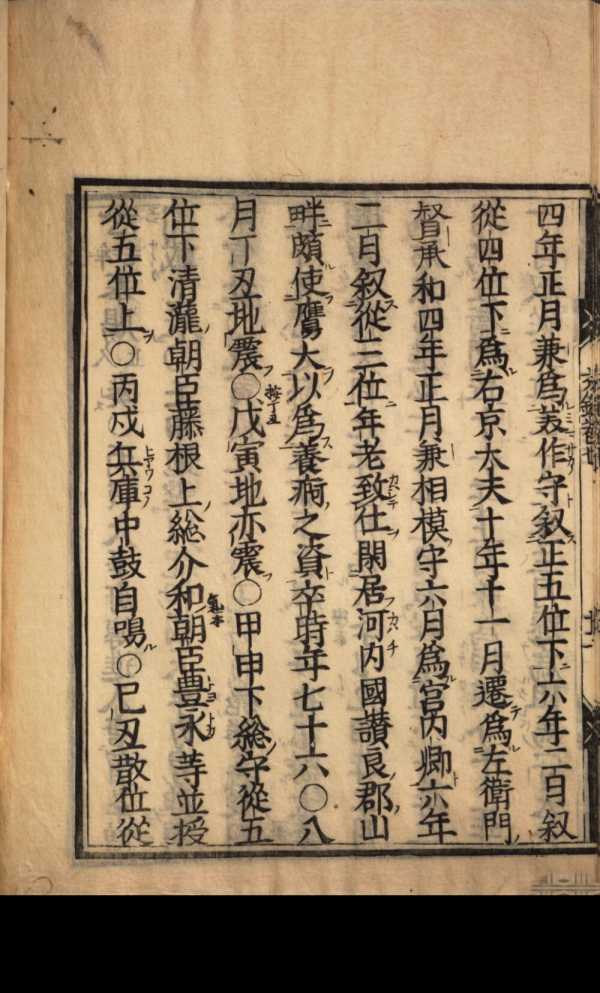 四年正月兼爲美作守叙正五位下六年二月叙
從四位下爲右京大夫十年十一月遷爲左衛門
督承和四年正月兼相模守六月爲宮内卿六年
二月叙從三位年老致仕閑居河内國讃良郡山
畔頗使鷹犬以爲養痾之資卒時年七十六○八
月丁丑地震○戊寅地亦震○甲申下総守從五
位下清瀧朝臣藤根上総介和朝臣豊永等並授
從五位上○丙戌兵庫中鼓自鳴○己丑散位從